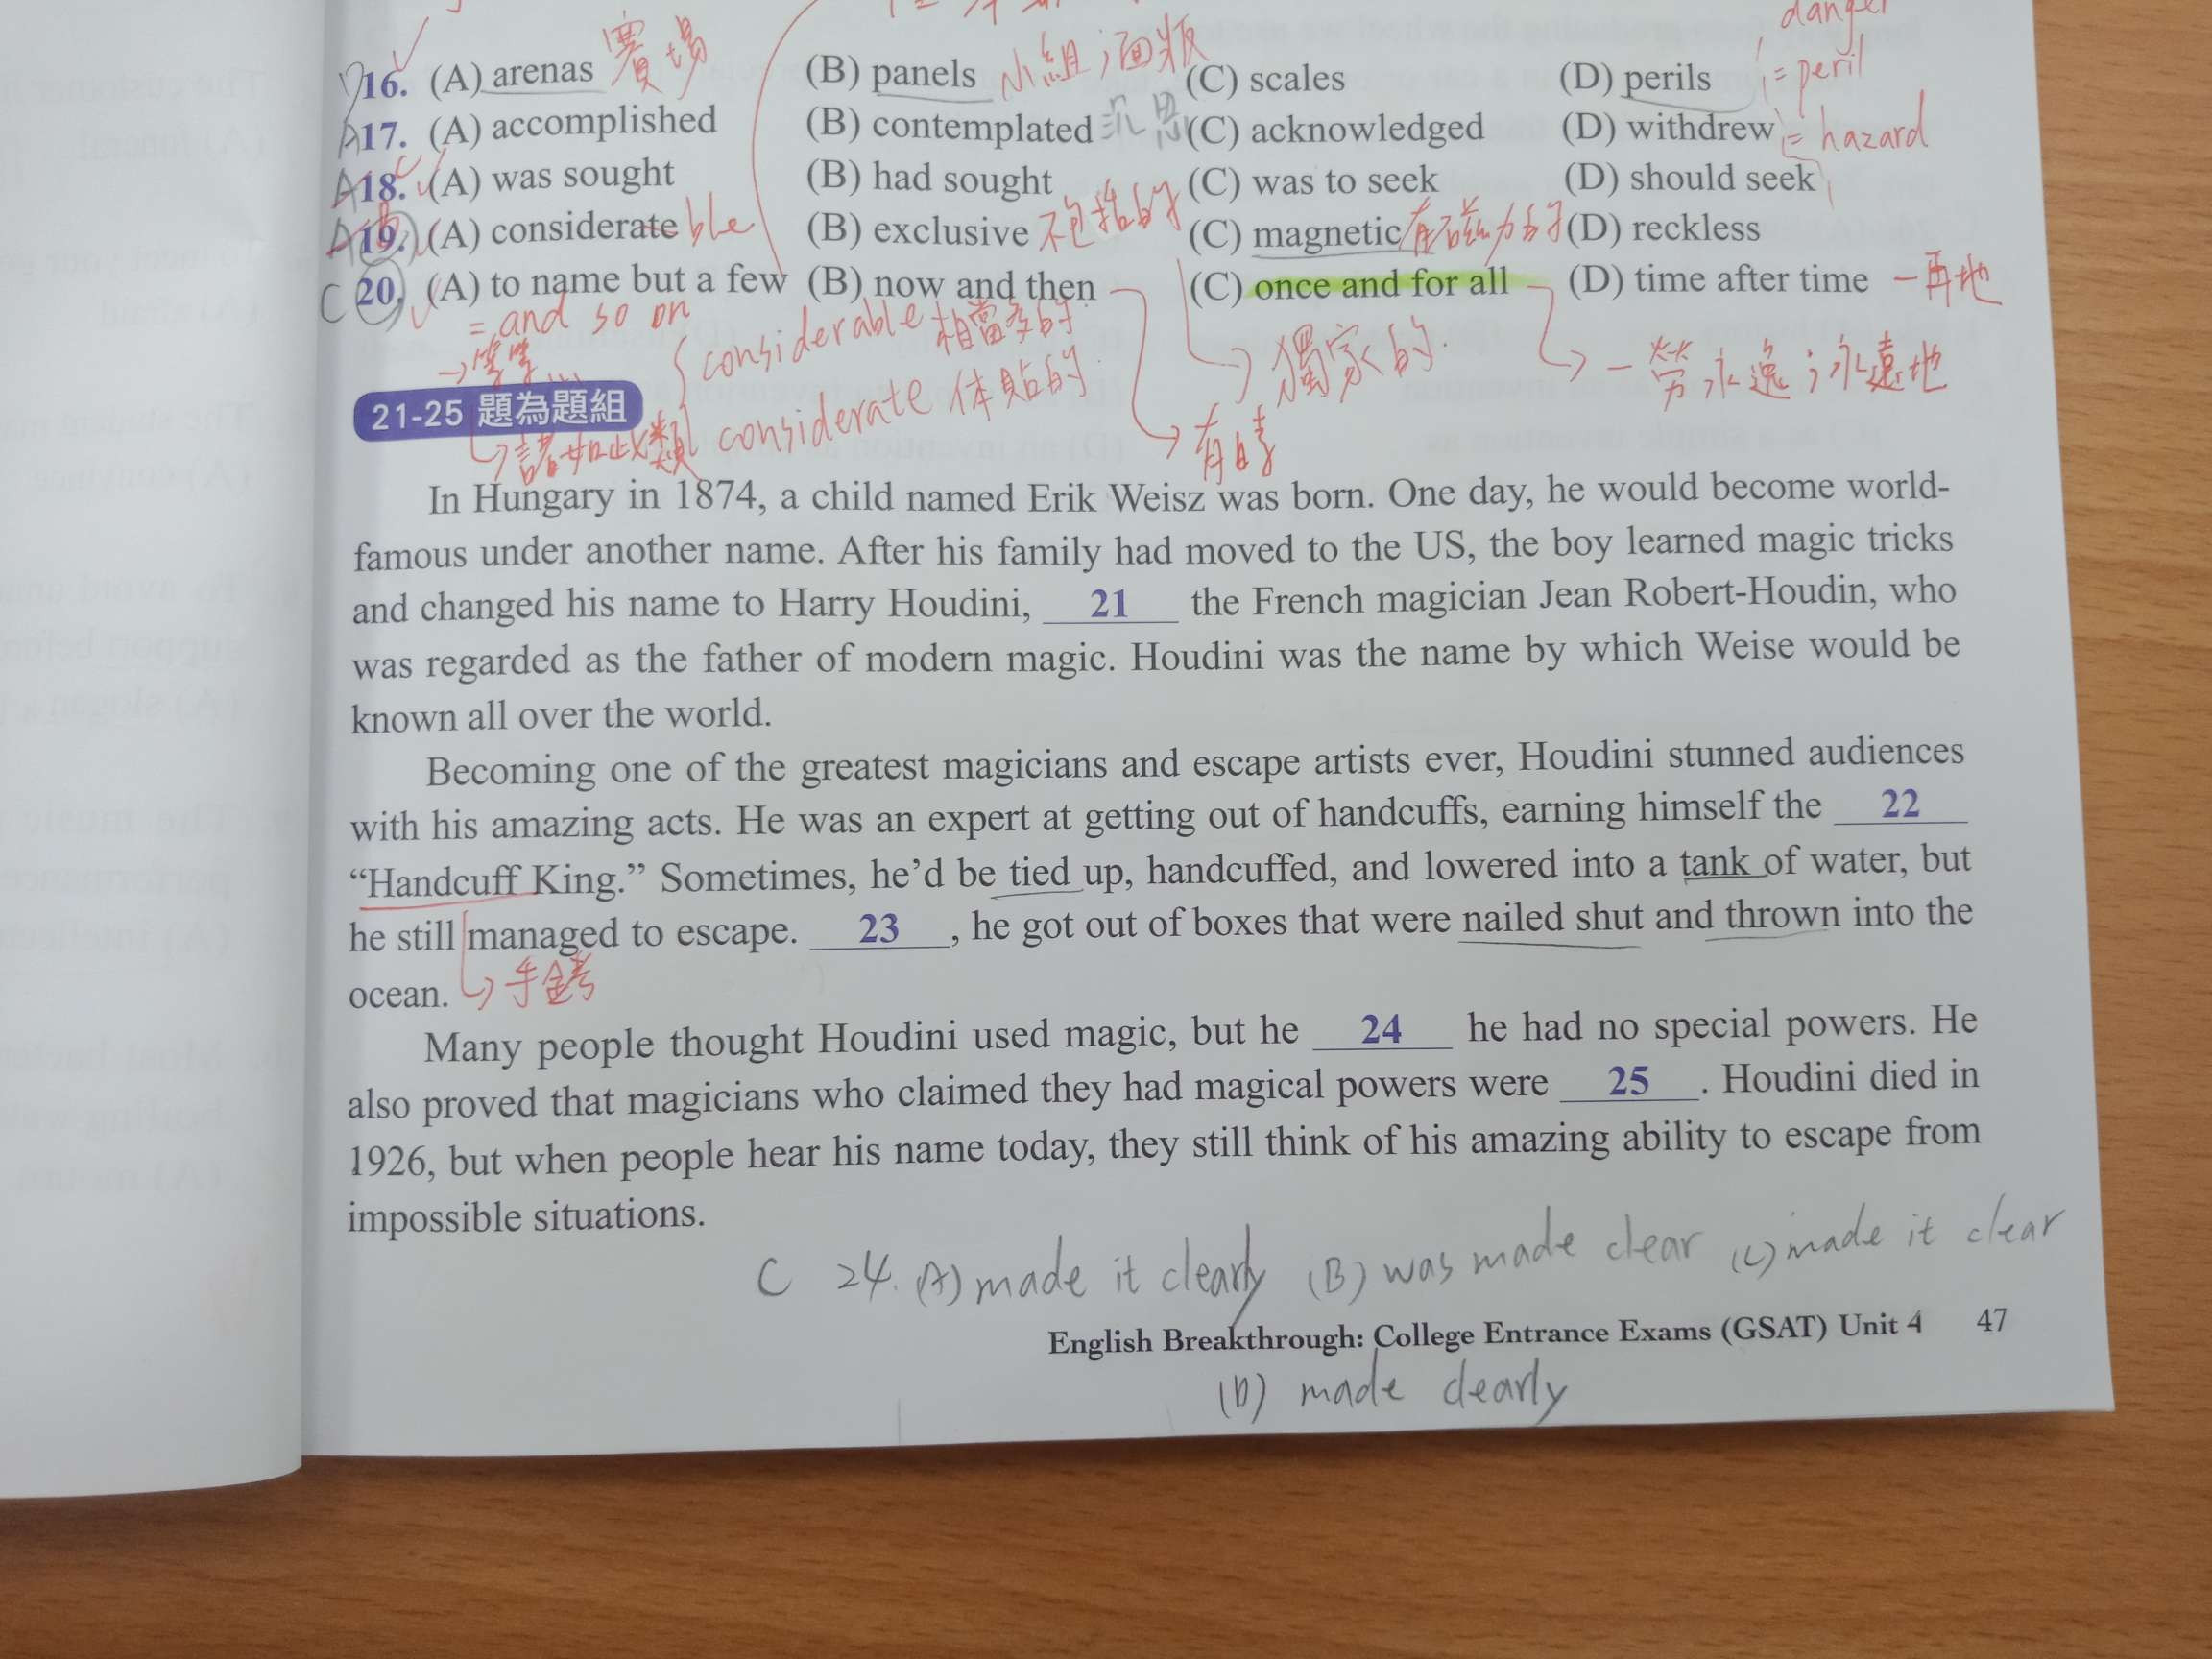 danger
16. (A) arenas 賽場 (B) panels 小組；面版 (C) scales (D) perils = peril
A17. (A) accomplished (B) contemplated 沉思 (C) acknowledged (D) withdrew = hazard
A18. (A) was sought (B) had sought (C) was to seek (D) should seek
A19. (A) considerate ble (B) exclusive 不包括的 (C) magnetic 有磁力的 (D) reckless
C 20. (A) to name but a few (B) now and then (C) once and for all (D) time after time 一再地
= and so on considerable 相當多的
→等等... 獨家的. 一勞永逸；永遠地
21-25 題為題組 considerate 体貼的
諸如此類 有時
In Hungary in 1874, a child named Erik Weisz was born. One day, he would become world-
famous under another name. After his family had moved to the US, the boy learned magic tricks
and changed his name to Harry Houdini, 21 the French magician Jean Robert-Houdin, who
was regarded as the father of modern magic. Houdini was the name by which Weise would be
known all over the world.
Becoming one of the greatest magicians and escape artists ever, Houdini stunned audiences
with his amazing acts. He was an expert at getting out of handcuffs, earning himself the 22
“Handcuff King.” Sometimes, he’d be tied up, handcuffed, and lowered into a tank of water, but
he still managed to escape. 23 , he got out of boxes that were nailed shut and thrown into the
ocean. 手銬
Many people thought Houdini used magic, but he 24 he had no special powers. He
also proved that magicians who claimed they had magical powers were 25 . Houdini died in
1926, but when people hear his name today, they still think of his amazing ability to escape from
impossible situations.
C 24. (A) made it clearly (B) was made clear (C) made it clear
English Breakthrough: College Entrance Exams (GSAT) Unit 4 47
(D) made clearly